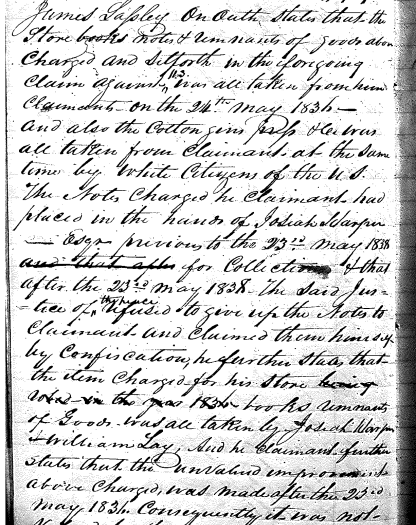 James Lasley On Oath States that the
Store books notes & remnants of goods above
Charged and Setforth in the foregoing
Claim against U.S. was all taken from him
Claimants on the 24th May 1836 —
and also the Cotton gins press &c was
all taken from Claimant at the same
time by White Citizens of the U S.
The Notes Charged he Claimant had
placed in the hands of Josiah Warper
— Esqr previous to the 23rd May 1838
and that after for Collection & that
after the 23rd May 1838 The Said Jus-
tice of the peace refused to give up the Notes to
Claimant and Claimed them himself
by Confiscation, he further States that
the item Charged for his Store being
in the year 1836 books remnants
of Goods was all taken by Josiah Warper
& William Lay, And he Claimant further
States that the unvalued improvements
above Charged, was made after the 23rd
May 1836. Consequently it was not